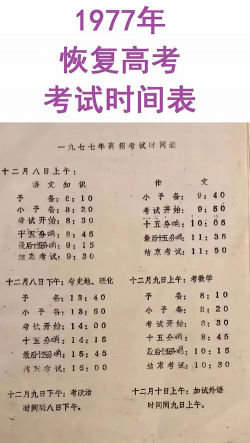 1977年
恢复高考
考试时间表
一九七七年高招考试时间表
十二月八日上午：
语文知识
予备：8：10
小予备：8：20
考试开始：8：30
十五分的：8：45
最后十五分的：9：15
结束考试：9：30
作文
予备：9：40
小予备：9：50
考试开始：10：00
十五分的：10：15
最后十五分的：11：35
结束考试：11：50
十二月八日下午：考史地、理化
予备：13：40
小予备：13：50
考试开始：14：00
十五分：14：15
最后十五分的：15：45
结束考试：16：00
十二月九日上午：考数学
予备：8：10
小予备：8：20
考试开始：8：30
十五分：8：45
最后十五分的：10：15
结束考试：10：30
十二月九日下午：考政治
时间同八日下午。
十二月十日上午：加试外语
时间同九日上午。